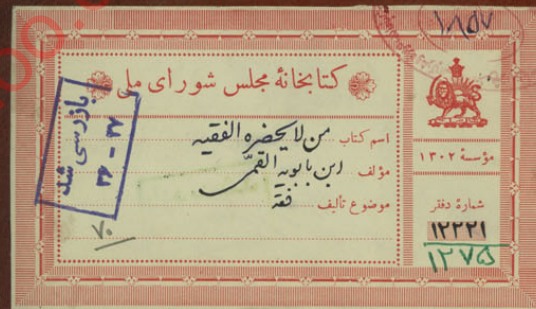 ۱۸۵۷
کتابخانهٔ مجلس شورای ملی
اسم کتاب من لایحضره الفقیه
مؤلف ابن بابویه القمی
موضوع تألیف فقه
مؤسسهٔ ۱۳۰۲
شمارهٔ دفتر
۱۲۲۲۱
۱۲۷۵
بازرسی شد
۳۶ - ۳۷
۷۰